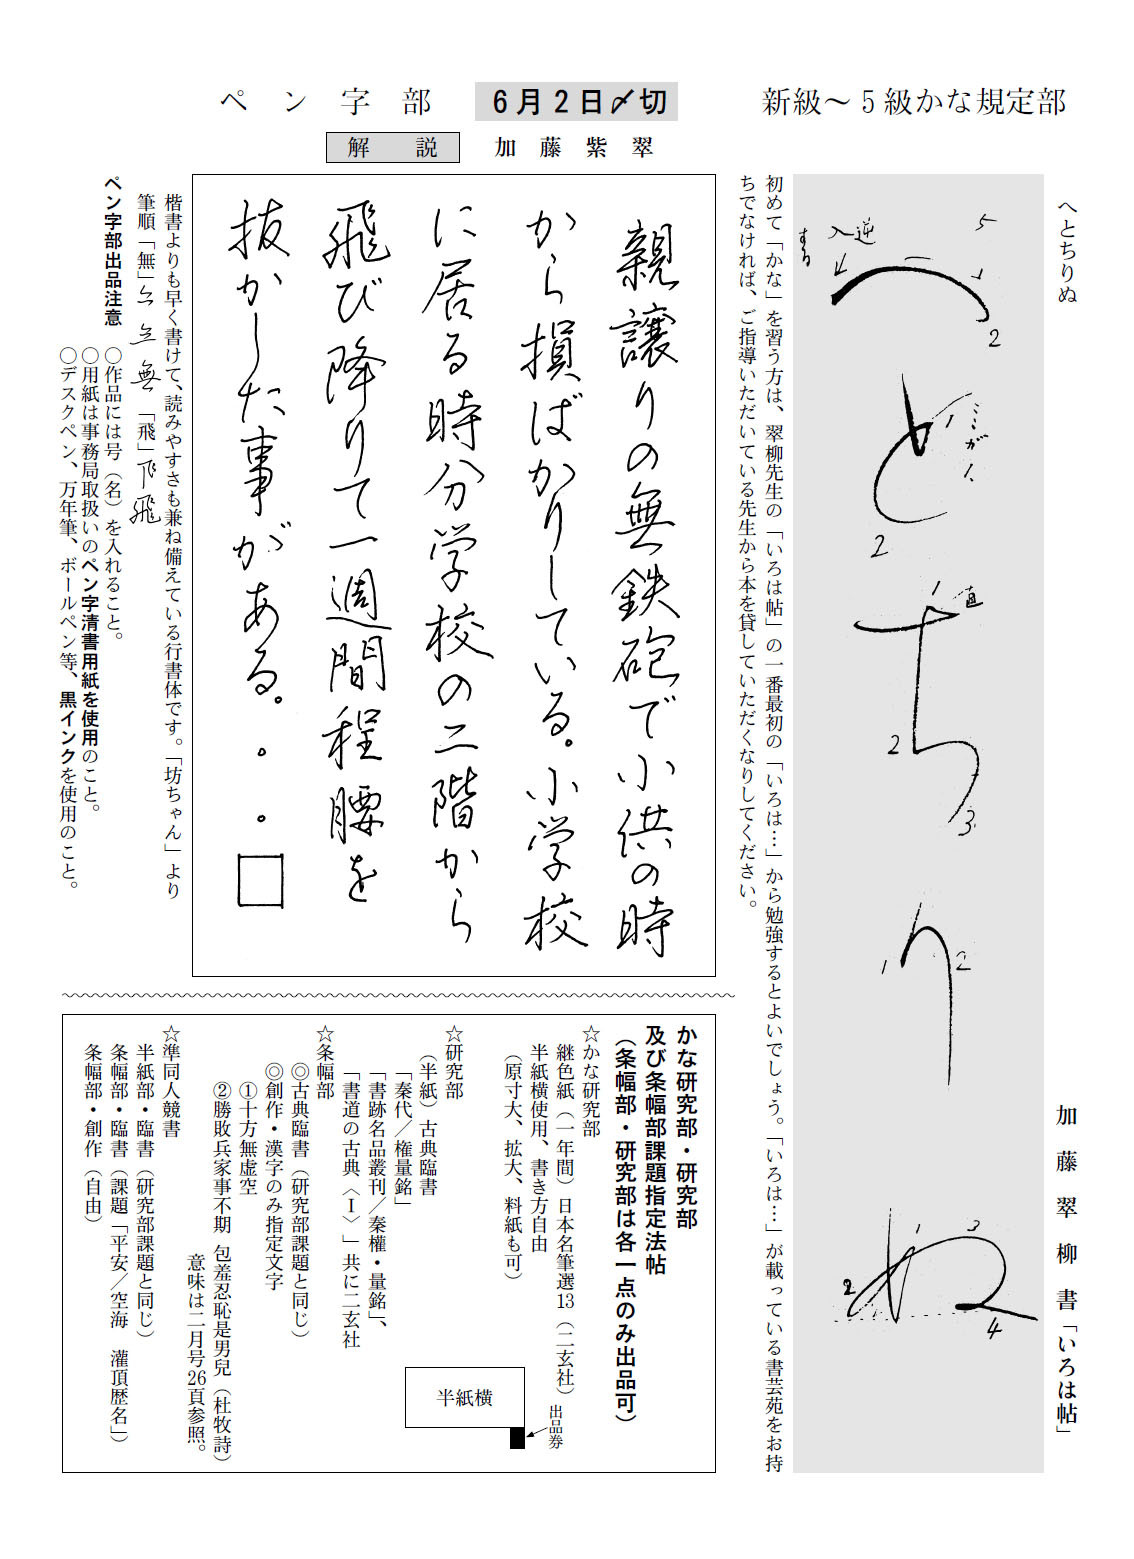 新級～５級かな規定部
へとちりぬ
加藤翠柳書「いろは帖」
逆
入
する
一
2
と
1
ミミが
2
1
直
ち
2
3
り
1
2
ぬ
1
2
3
4
初めて「かな」を習う方は、翠柳先生の「いろは帖」の一番最初の「いろは…」から勉強するとよいでしょう。「いろは…」が載っている書芸苑をお持
ちでなければ、ご指導いただいている先生から本を貸していただくなりしてください。
ペン字部
６月２日〆切
解説
加藤紫翠
親譲りの無鉄砲で小供の時
から損ばかりしている。小学校
に居る時分学校の二階から
飛び降りて一週間程腰を
抜かした事がある。。。□
楷書よりも早く書けて、読みやすさも兼ね備えている行書体です。「坊ちゃん」より
筆順「無」無「飛」飛
ペン字部出品注意
○作品には号（名）を入れること。
○用紙は事務局取扱いのペン字清書用紙を使用のこと。
○デスクペン、万年筆、ボールペン等、黒インクを使用のこと。
かな研究部・研究部
及び条幅部課題指定法帖
（条幅部・研究部は各一点のみ出品可）
☆かな研究部
継色紙（一年間）日本名筆選13（二玄社）
半紙横使用、書き方自由
（原寸大、拡大、料紙も可）
半紙横
出品券
☆研究部
（半紙）古典臨書
「秦代／権量銘」
「書跡名品叢刊／秦權・量銘」、
「書道の古典〈Ⅰ〉」共に二玄社
☆条幅部
◎古典臨書（研究部課題と同じ）
◎創作・漢字のみ指定文字
①十方無虚空
②勝敗兵家事不期　包羞忍恥是男兒（杜牧詩）
意味は二月号26頁参照。
☆準同人競書
半紙部・臨書（研究部課題と同じ）
条幅部・臨書（課題「平安／空海　灌頂歴名」）
条幅部・創作（自由）